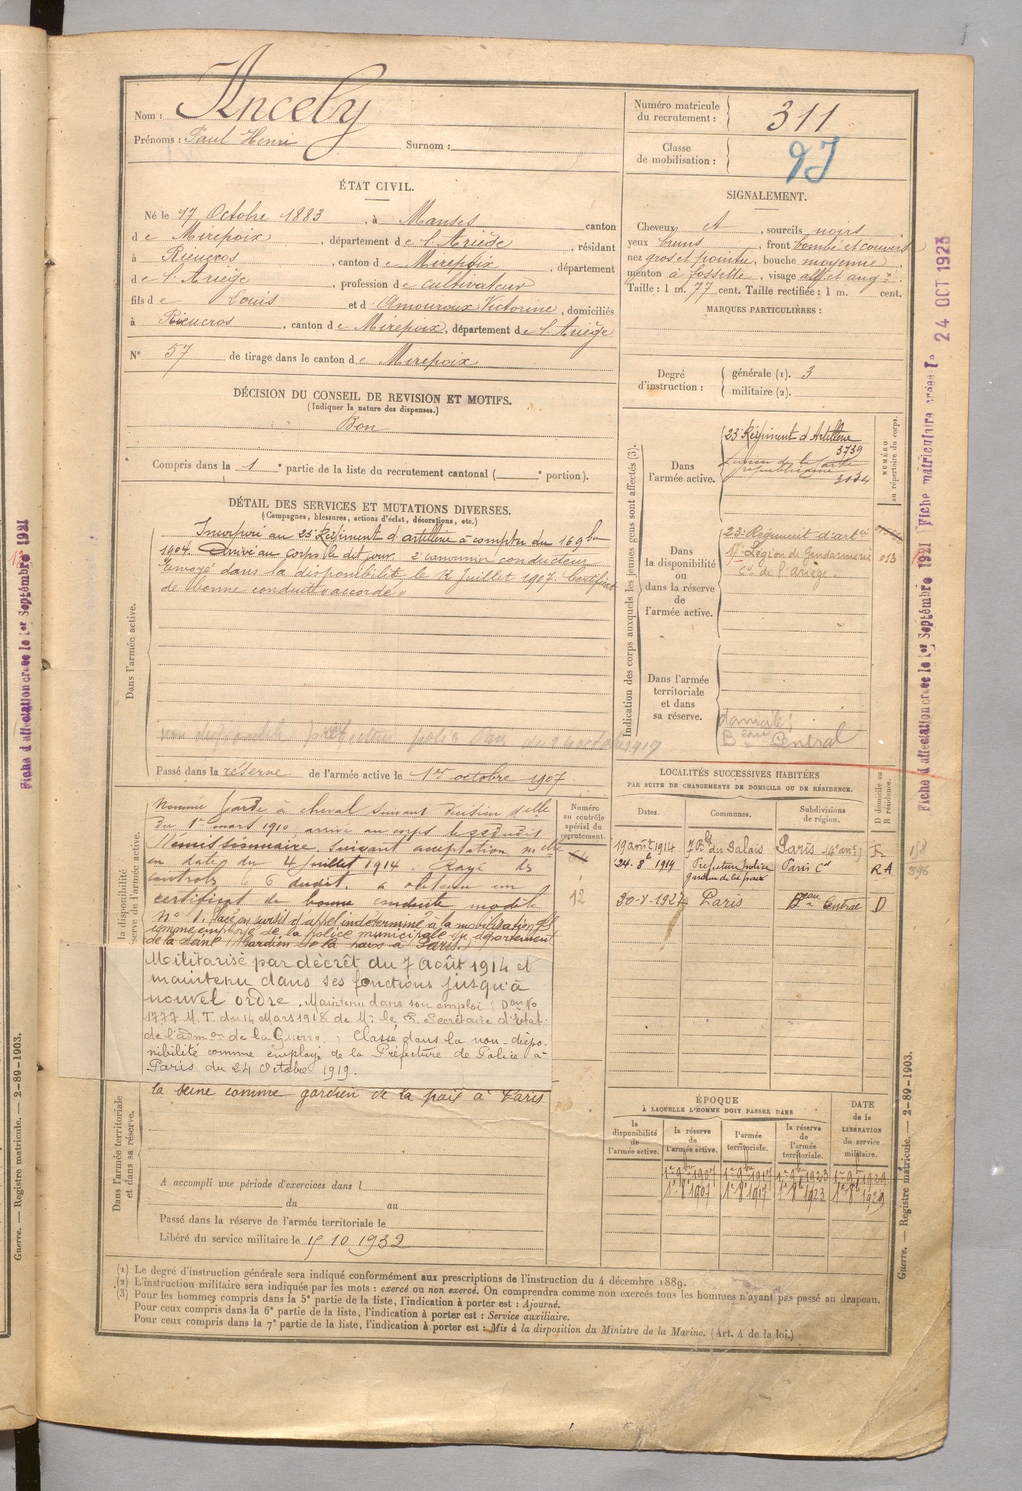 Nom : Ancely
Prénoms : Paul Henri Surnom :
Numéro matricule du recrutement : 311
Classe de mobilisation :
ÉTAT CIVIL.
Né le 17 Octobre 1883, à Manses canton
de Mirepoix, département de l'Ariège, résidant
à Rieucros, canton de Mirepoix, département
de l'Ariège, profession de cultivateur
fils de Louis et d'Amouroux Victorine, domiciliés
à Rieucros, canton de Mirepoix, département de l'Ariège
N° 57 de tirage dans le canton de Mirepoix
SIGNALEMENT.
Cheveux et, sourcils noirs
yeux bruns, front bombé et couvert
nez gros et pointu, bouche moyenne
menton à fossette, visage
Taille : 1 m. 77 cent. Taille rectifiée : 1 m. cent.
MARQUES PARTICULIÈRES :
Degré d'instruction : générale (1). 3
militaire (2).
DÉCISION DU CONSEIL DE REVISION ET MOTIFS.
(Indiquer la nature des dispenses.)
Bon
Compris dans la 1e partie de la liste du recrutement cantonal ( e portion).
DÉTAIL DES SERVICES ET MUTATIONS DIVERSES.
(Campagnes, blessures, actions d'éclat, décorations, etc.)
Dans l'armée active.
Incorporé au 23e Régiment d'artillerie à compter du 16 9bre
1904. Arrivé au corps le dit jour. 2e canonnier conducteur
Envoyé dans la disponibilité le juillet 1907. Certificat
de bonne conduite "accordé"
Passé dans la réserve de l'armée active le 1er octobre 1907.
Indication des corps auxquels les jeunes gens sont affectés (3).
NUMÉRO au répertoire du corps.
Dans l'armée active.
23e Régiment d'Artillerie
3739
Légion de la Garde
républicaine
3134
Dans la disponibilité ou dans la réserve de l'armée active.
23e Régiment d'artie
Légion de Gendarmerie
Cie de l'Ariège
Dans l'armée territoriale et dans sa réserve.
domicile
Beau Central
LOCALITÉS SUCCESSIVES HABITÉES
PAR SUITE DE CHANGEMENTS DE DOMICILE OU DE RÉSIDENCE.
Dates. Communes. Subdivisions de région. D domicile ou R résidence.
19 août 1914 7 Bd du Palais Paris (4e arrt) R
24-8bre 1919 Préfecture police Paris Cal RA
gardien de la paix
30-V-1927 Paris Beau Central D
Nommé Garde à cheval suivant décision mlle
du 1er mars 1910, arrivé au corps le susdit
Démissionnaire. Suivant acceptation mlle
en date du 4 juillet 1914. Rayé des
contrôles le 6 dudit. a obtenu un
certificat de bonne conduite modèle
N° 1. Placé en sursis d'appel indéterminé à la mobilisation
comme employé de la police municipale du département
de la Seine (Gardien de la paix à Paris)
Militarisé par décrêt du 7 Août 1914 et
maintenu dans ses fonctions jusqu'à
nouvel ordre. Maintenu dans son emploi Don No
1777 M.T. du 14 Mars 1918 de Mr le S. Secrétaire d'Etat
de l'admon de la Guerre. Classé dans la non-dispo-
nibilité comme employé de la Préfecture de Police à
Paris du 24 Octobre 1919.
la Seine comme gardien de la paix à Paris
Numéro au contrôle spécial du recrutement.
12
Dans l'armée territoriale et dans sa réserve.
A accompli une période d'exercices dans l
du au
Passé dans la réserve de l'armée territoriale le
Libéré du service militaire le 15 10 1932
ÉPOQUE
À LAQUELLE L'HOMME DOIT PASSER DANS
la disponibilité de l'armée active.
la réserve de l'armée active.
l'armée territoriale.
la réserve de l'armée territoriale.
DATE de la LIBÉRATION du service militaire.
1er 9bre 1907 1er 9bre 1917 1er 9bre 1923 1er 9bre 1929
1er 8bre 1907 1er 8bre 1917 1er 8bre 1923 1er 8bre 1929
(1) Le degré d'instruction générale sera indiqué conformément aux prescriptions de l'instruction du 4 décembre 1889.
(2) L'instruction militaire sera indiquée par les mots : exercé ou non exercé. On comprendra comme non exercés tous les hommes n'ayant pas passé au drapeau.
(3) Pour les hommes compris dans la 5e partie de la liste, l'indication à porter est : Ajourné.
Pour ceux compris dans la 6e partie de la liste, l'indication à porter est : Service auxiliaire.
Pour ceux compris dans la 7e partie de la liste, l'indication à porter est : Mis à la disposition du Ministre de la Marine. (Art. 4 de la loi.)
Guerre. — Registre matricule. — 2-89-1903.
Fiche d'affectation créée le 1er Septembre 1921
Fiche matriculaire créée le 24 OCT 1923
Guerre. — Registre matricule. — 2-89-1903.
Fiche d'affectation créée le 1er Septembre 1921